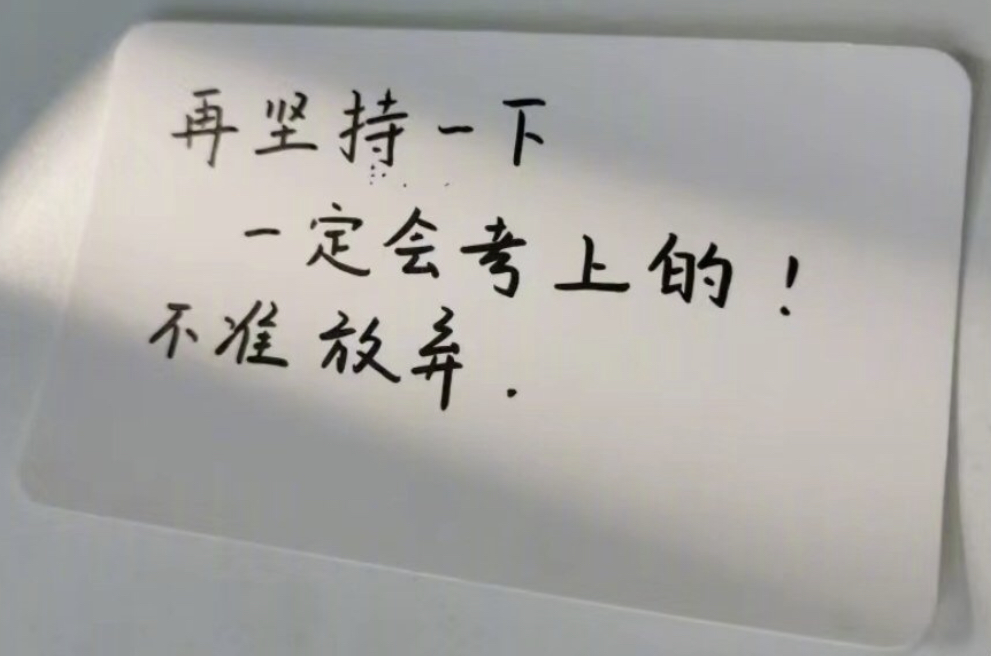 再坚持一下
一定会考上的！
不准放弃.